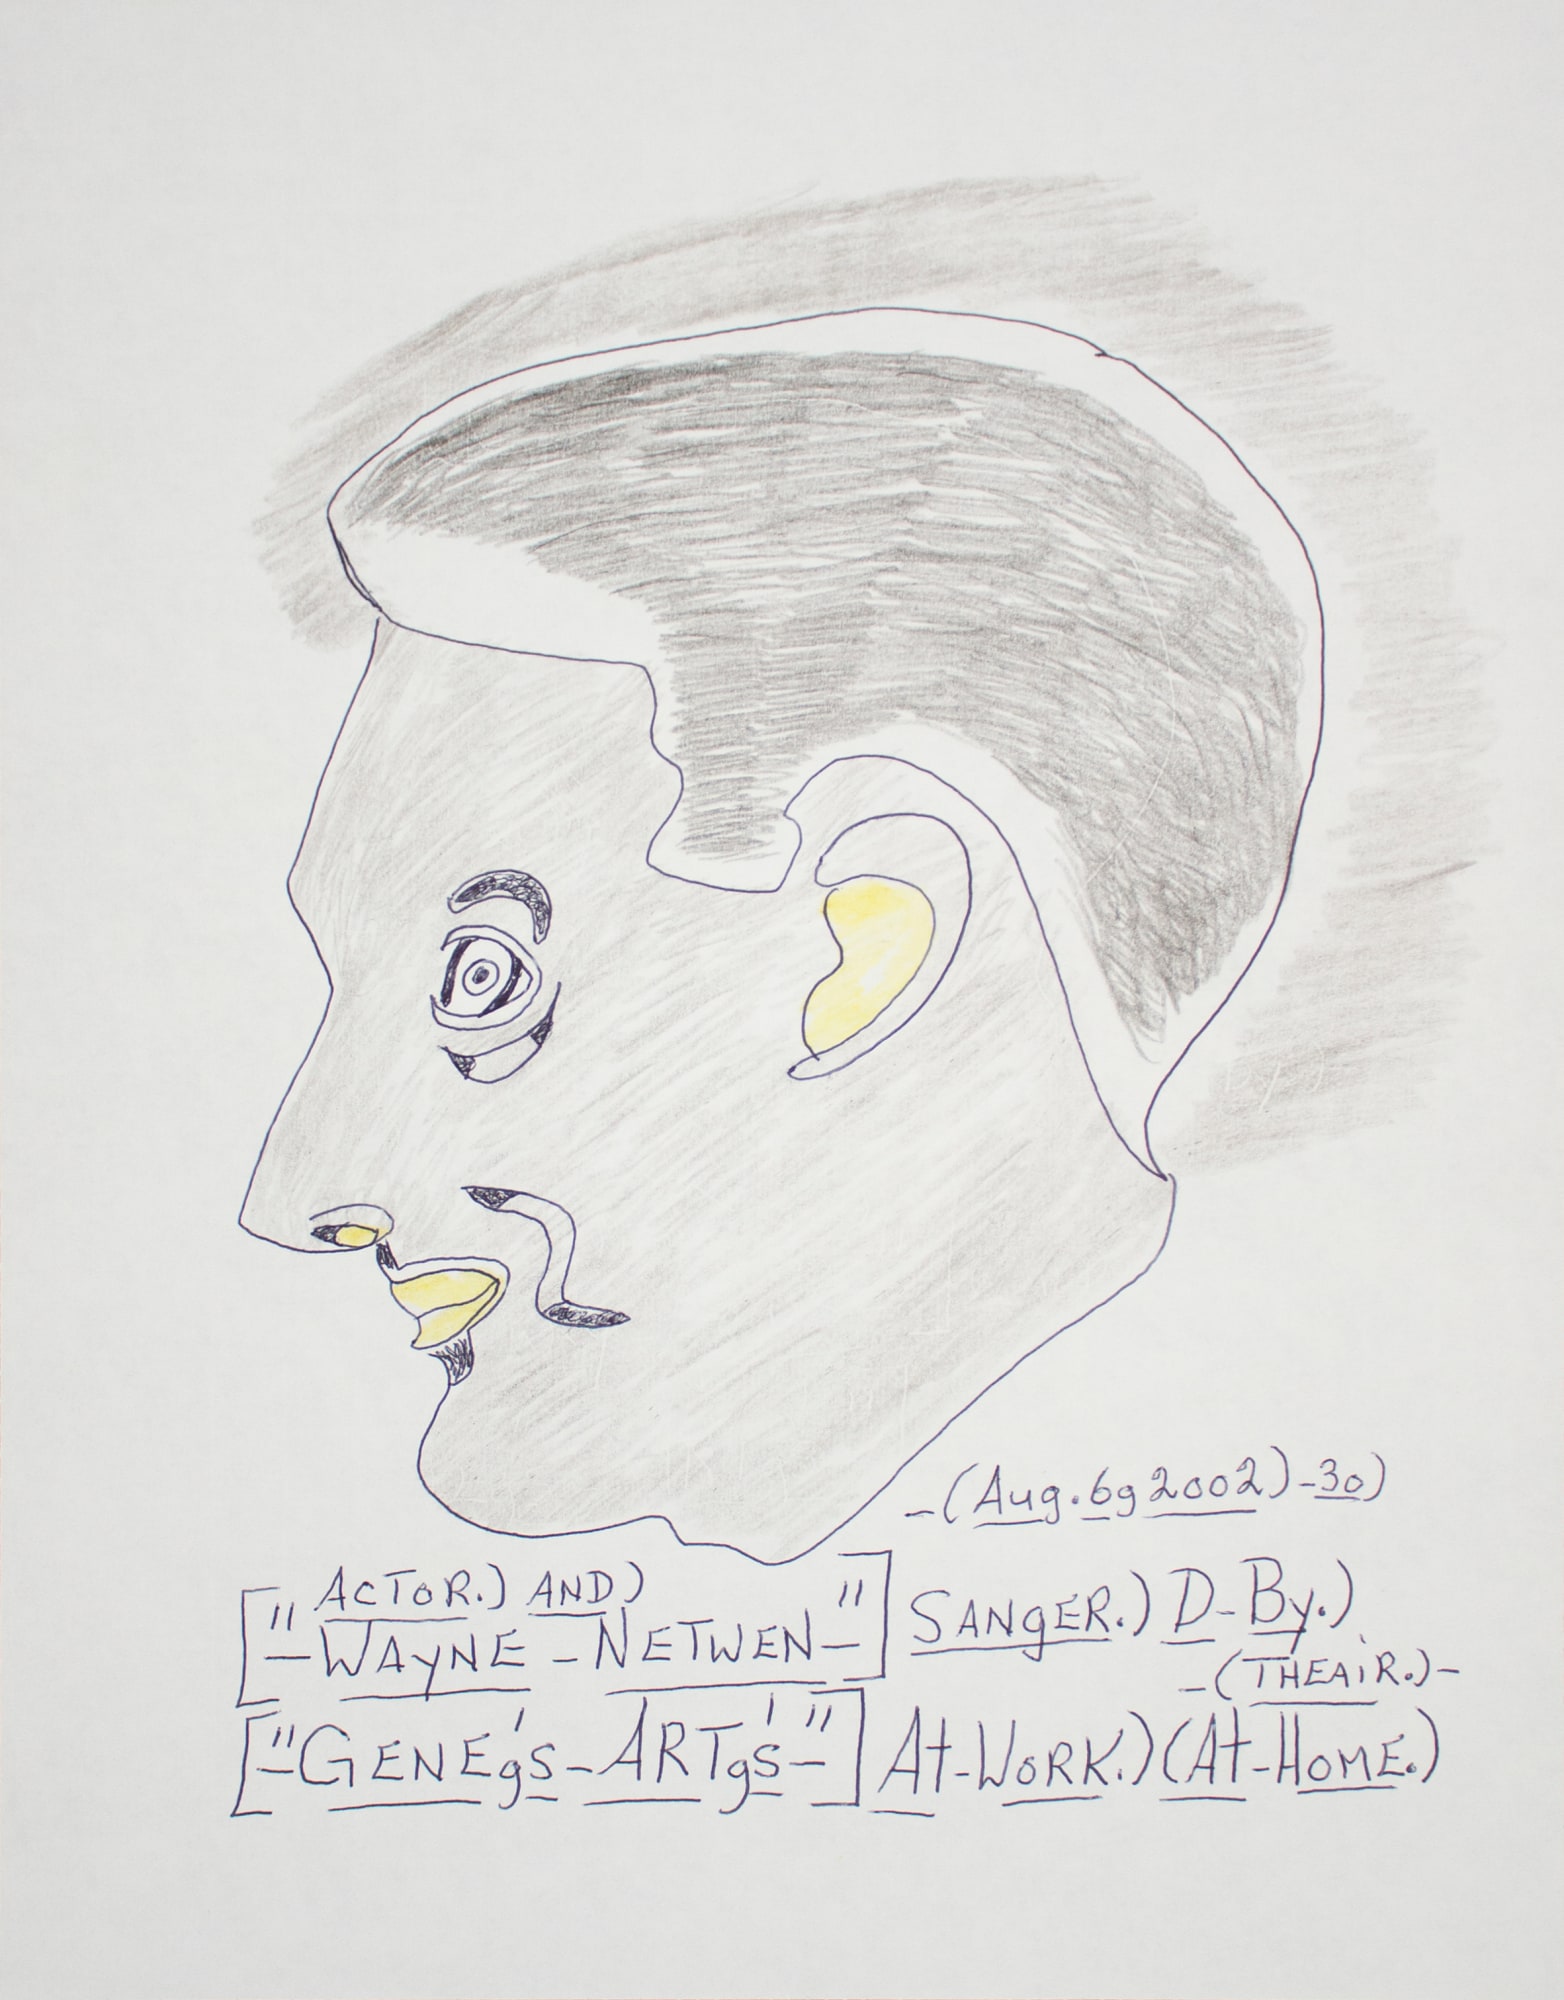 -(Aug.6g2002)-30)
ACTOR.) AND)
["-WAyNE-NETWEN-"] SANgER.) D-By.)
-(THEAiR.)-
["-GENEg's-ARTg's-"] At-WORK.) (At-HOME.)